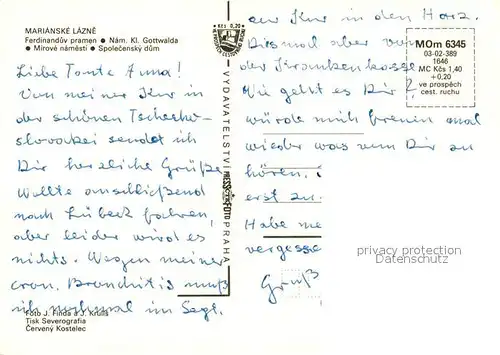 MARIÁNSKÉ LÁZNĚ
Ferdinandův pramen • Nám. Kl. Gottwalda
• Mírové náměstí • Společenský dům
Liebe Tante Anna!
Von meiner Kur in
der schönen Tschecho-
slovakei sendet ich
Dir herzliche Grüße
Wollte anschließend
nach Lübeck fahren,
aber leider wird es
nichts. Wegen meiner
cron. Bronchitis muß
ich nochmal im Sept.
Foto J. Finda a J. Krulis
Tisk Severografia
Červený Kostelec
Kčs 0,20
VYDAVATELSTVÍ PRESSFOTO PRAHA
zur Kur in den Harz.
Diesmal aber von
der Krankenkasse
Wie geht es Dir?
würde mich freuen mal
wieder was von Dir zu
hören.
erst zu
Habe me
vergesse
Gruß
MOm 6345
03-02-389
1646
MC Kčs 1,40
+0,20
ve prospěch
cest. ruchu
privacy protection
Datenschutz